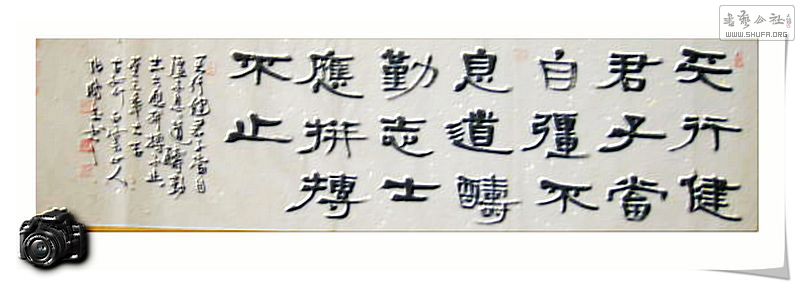 書藝公社
WWW.SHUFA.ORG
天行健
君子當
自彊不
息道醻
勤志士
應拼搏
不止
天行健君子當自
彊不息道醻勤
志士應拼搏不止